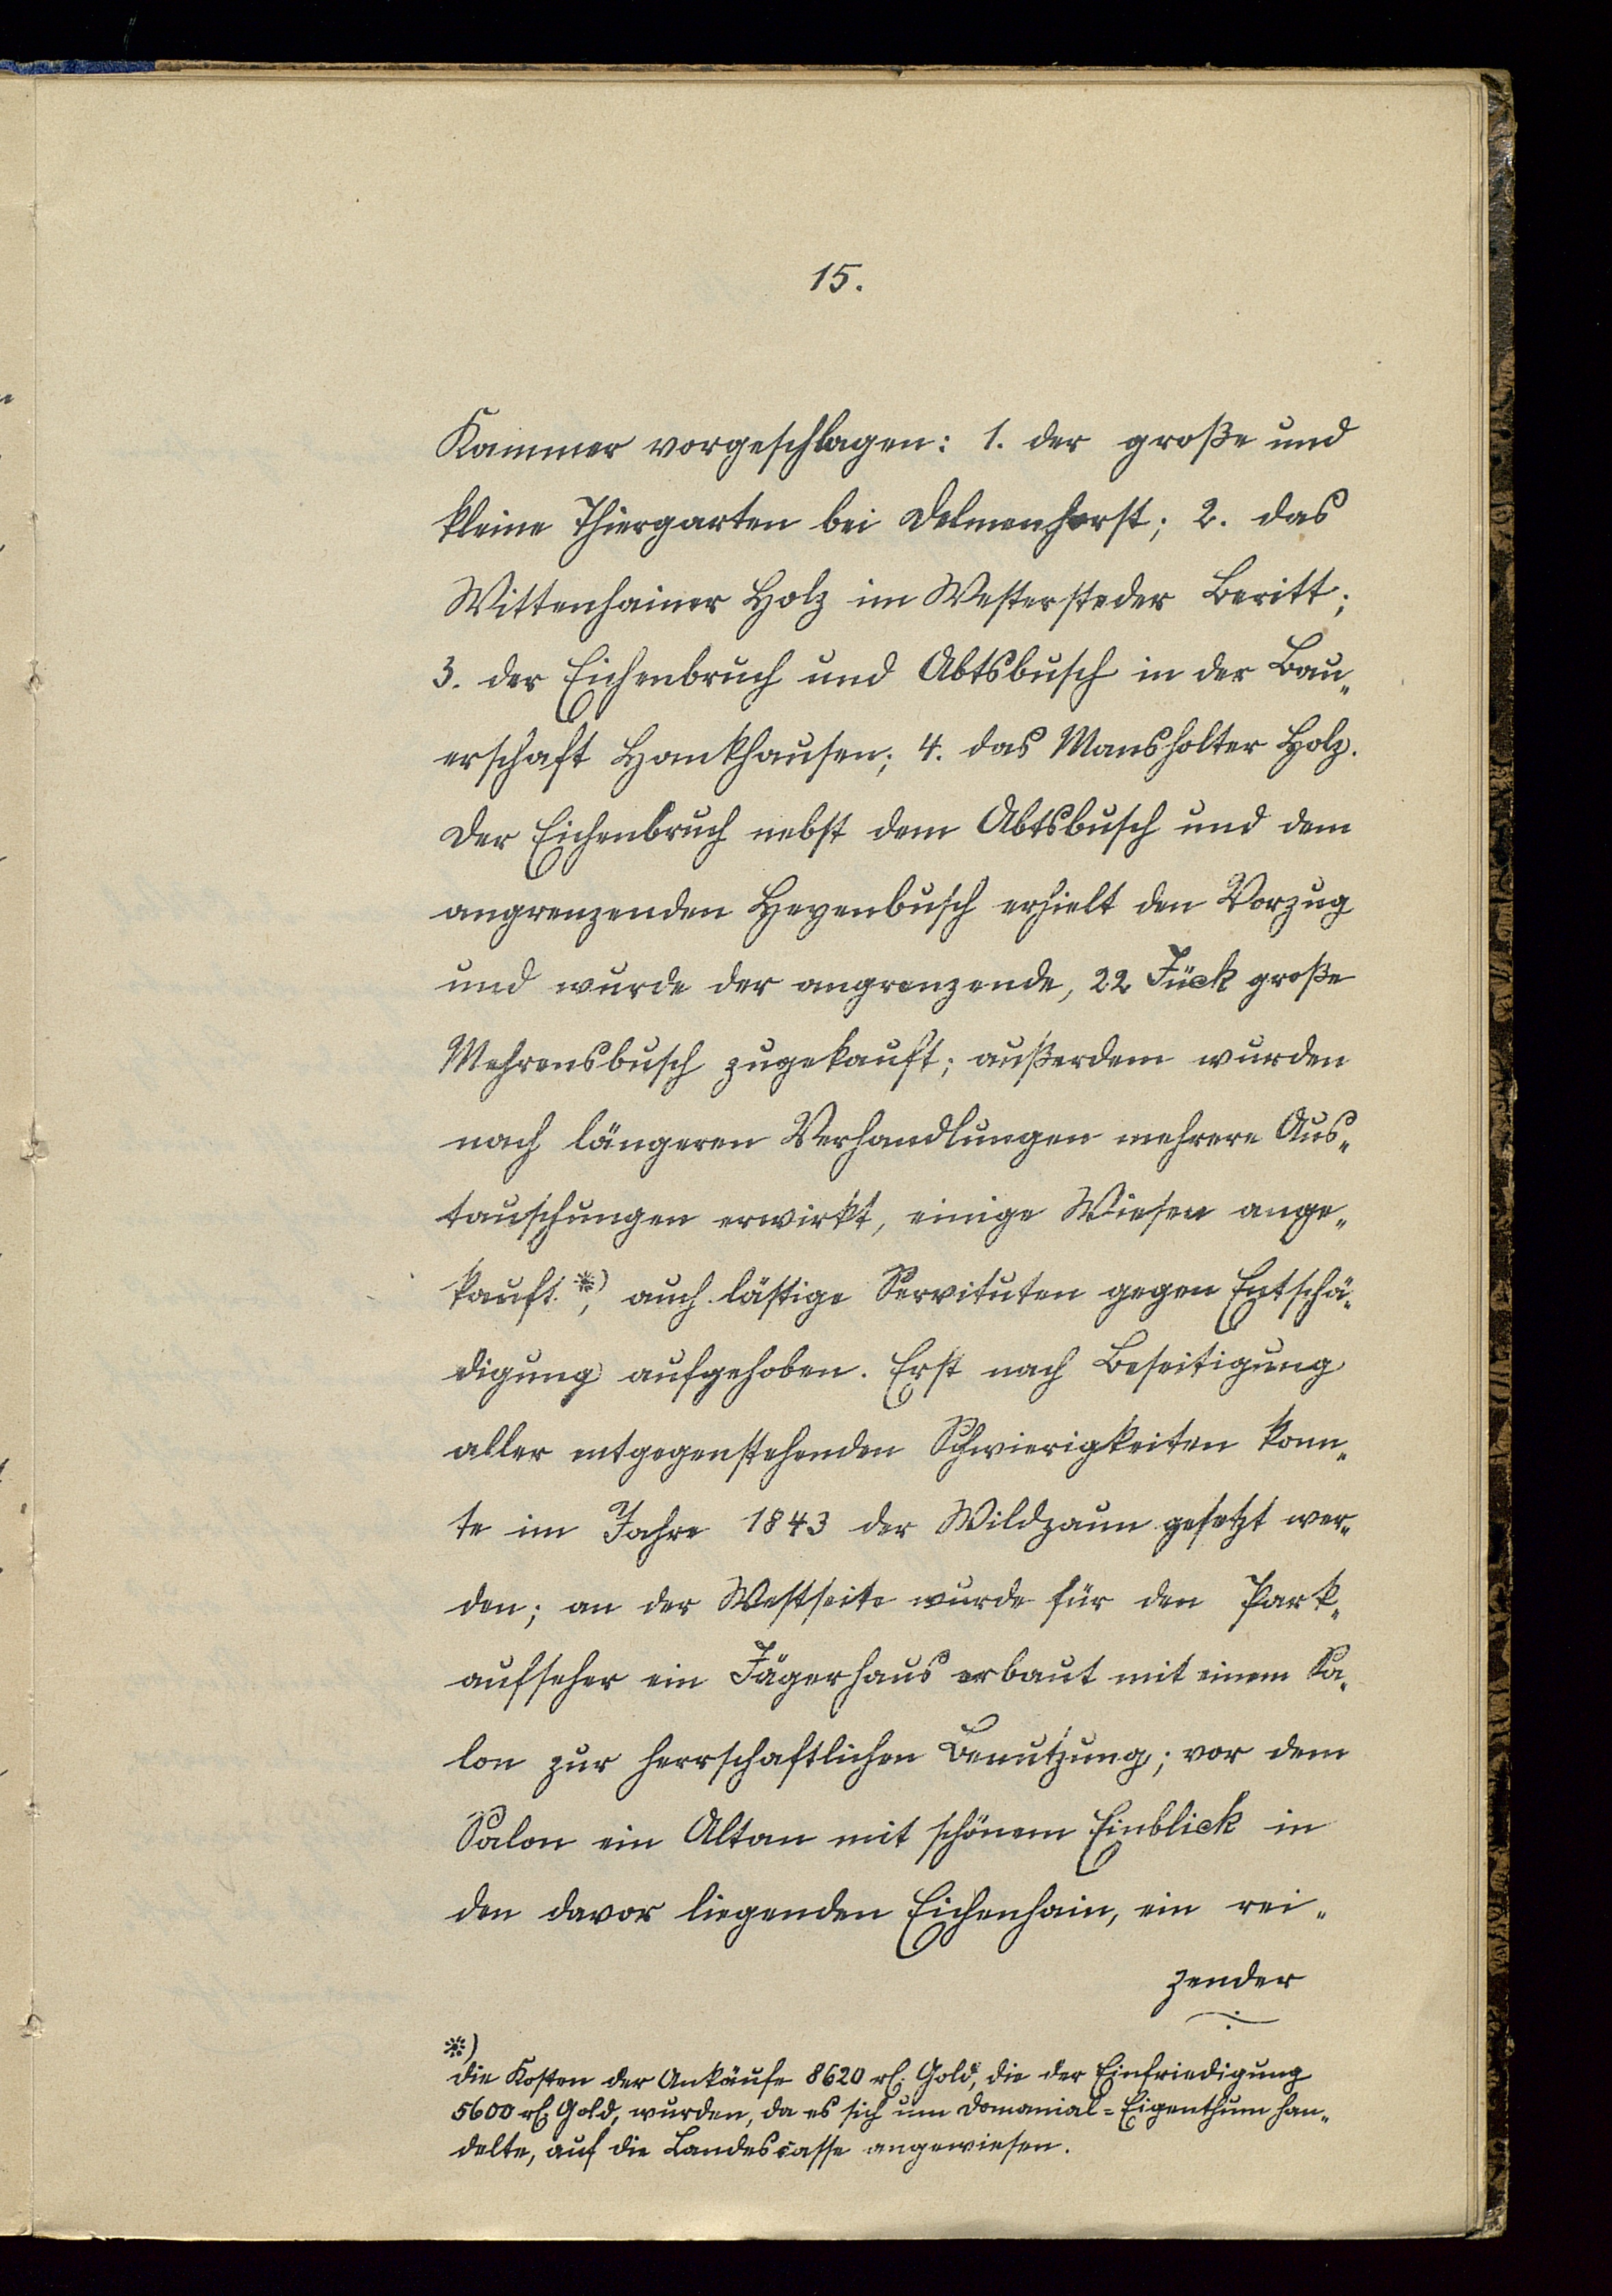 15.
Kammer vorgeschlagen: 1. der große und
kleine Thiergarten bei Delmenhorst; 2. das
Wittenhainer Holz im Westersteder Beritt;
3. der Eichenbruch und Abtsbusch in der Bau„
erschaft Hankhausen; 4. das Mansholter Holz.
Der Eichenbruch nebst dem Abtsbusch und dem
angrenzenden Heyenbusch erhielt den Vorzug
und wurde der angrenzende, 22 Jück große
Mehrensbusch zugekauft; außerdem wurden
nach längeren Verhandlungen mehrere Aus„
tauschungen erwirkt, einige Wiesen ange„
kauft *), auch lästige Servituten gegen Entschä„
digung aufgehoben. Erst nach Beseitigung
aller entgegenstehenden Schwierigkeiten konn„
te im Jahre 1843 der Wildzaun gesetzt wer„
den; an der Westseite wurde für den Park„
aufseher ein Jägerhaus erbaut mit einem Sa„
lon zur herrschaftlichen Benutzung; vor dem
Salon ein Altan mit schönem Einblick in
den davor liegenden Eichenhain, ein rei„
zender
*)
die Kosten der Ankäufe 8620 rl. Gold, die der Einfriedigung
5600 rl. Gold, wurden, da es sich um Domanial=Eigenthum han„
delte, auf die Landescasse angewiesen.